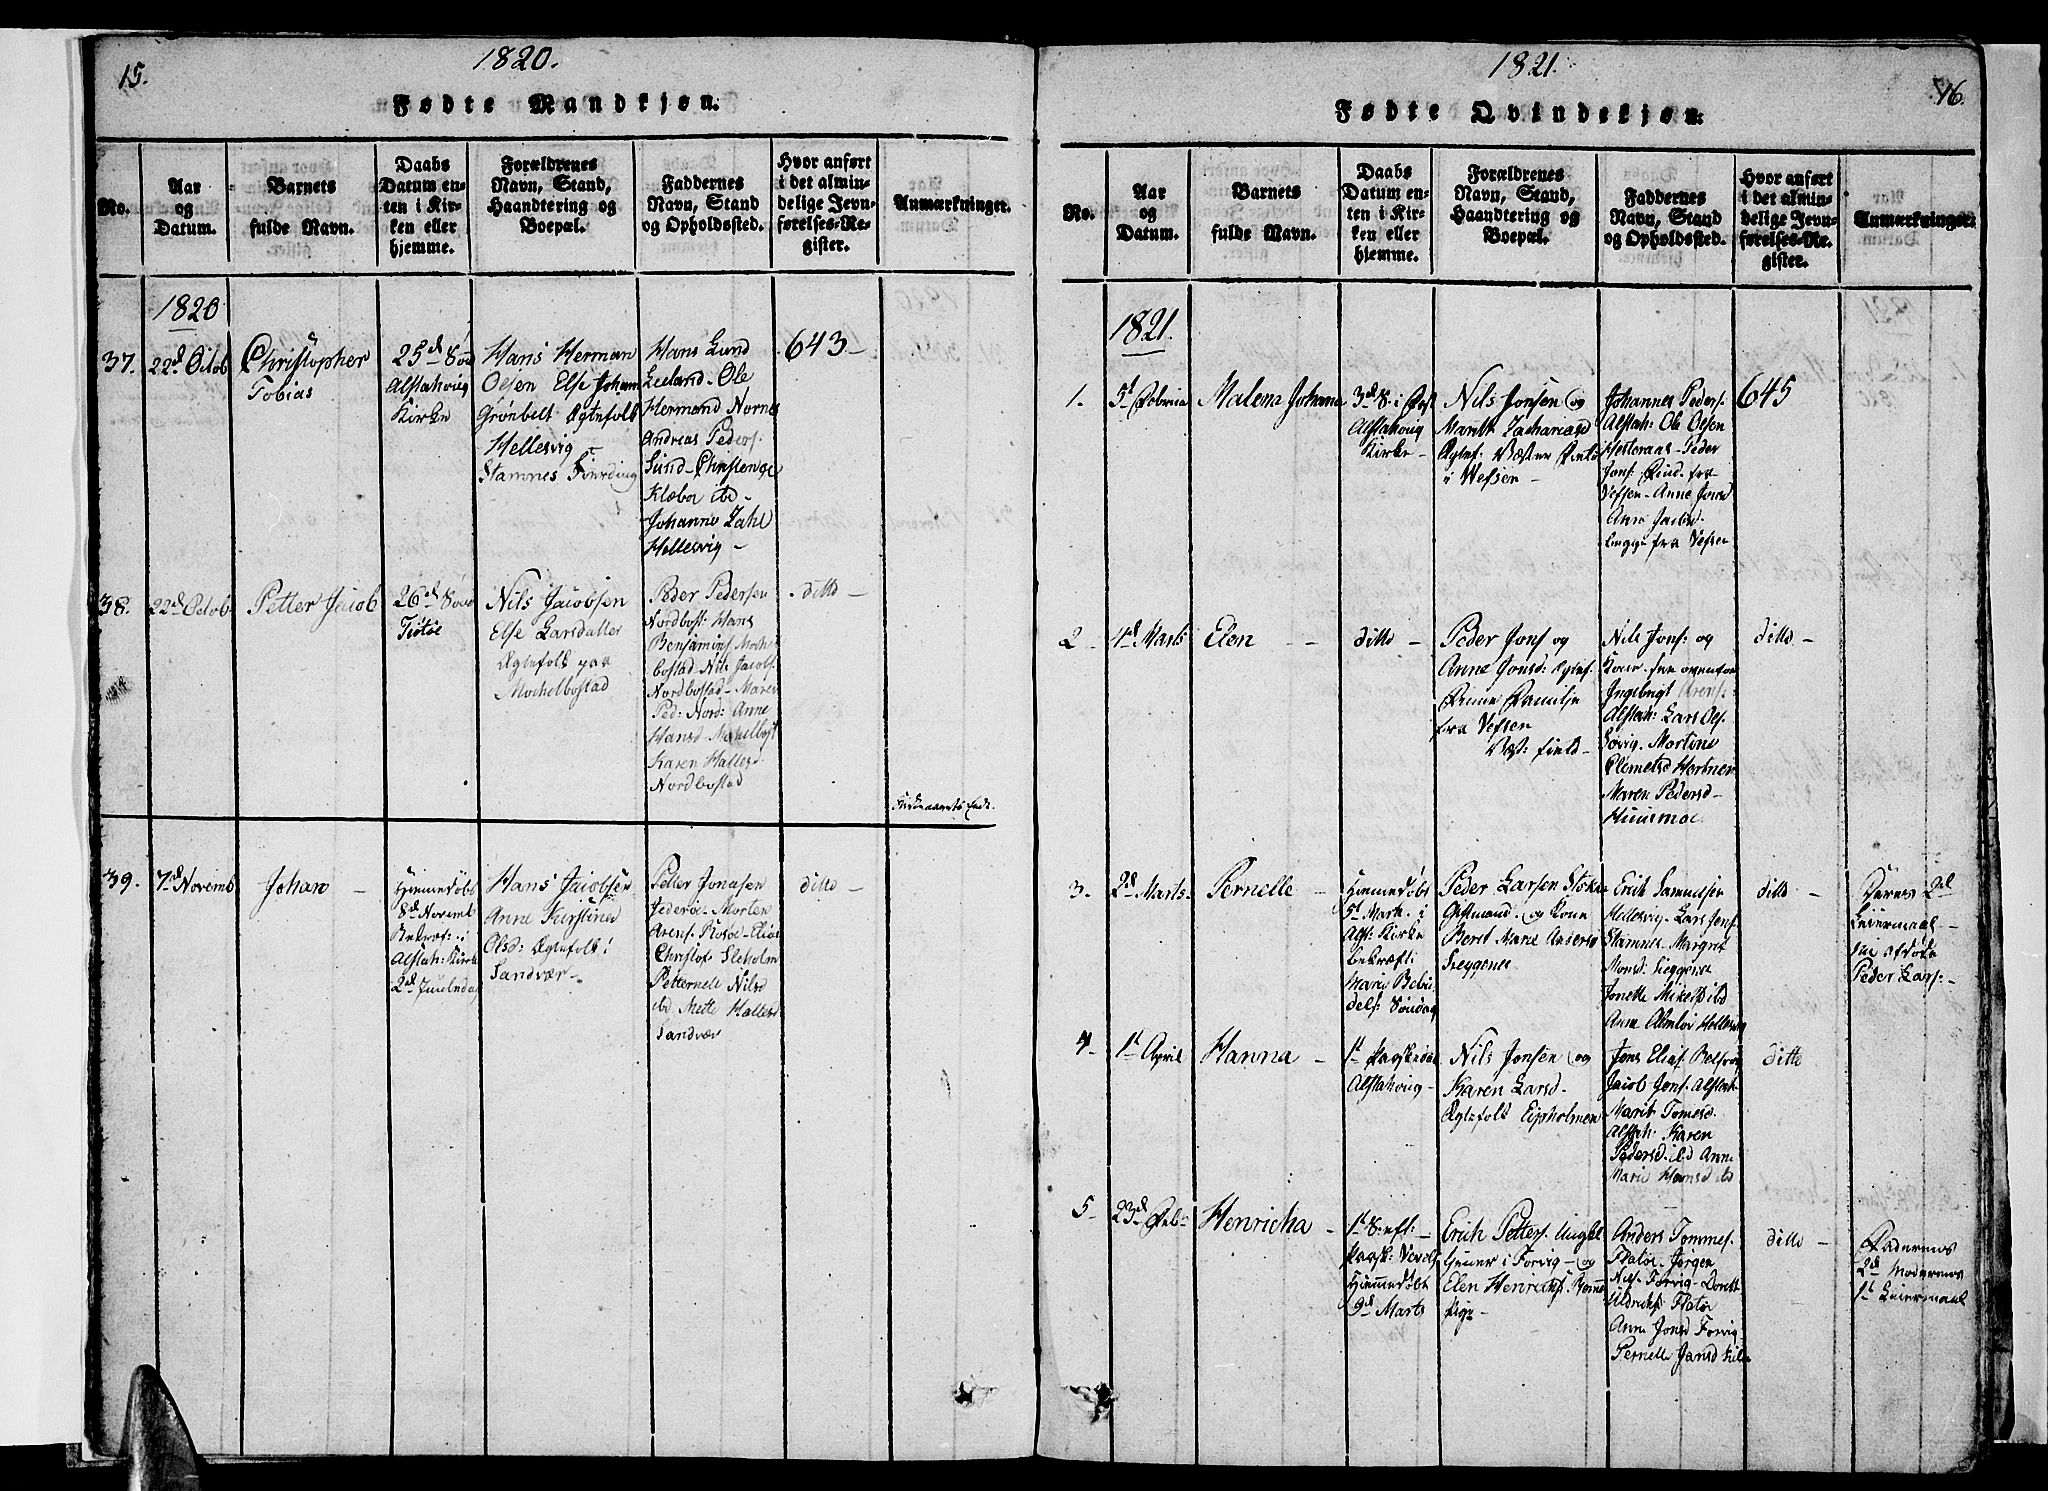 15.
1820.
Fødte Mandkjøn.
No.
Aar
og
Datum.
Barnets
fulde Navn.
Daabs
Datum en-
ten i Kir-
ken eller
hjemme.
Forældrenes
Navn, Stand,
Haandtering og
Boepæl.
Faddernes
Navn, Stand
og Opholdssted.
Hvor anført
i det almin-
delige Jevn-
førelses-Re-
gister.
Anmærkninger.
1820
37.
22d Octob
Christopher
Tobias
25d Søn
Alstahoug
Kirke
Hans Herman
Olsen Else Johan
Grønbelt Ægtefolk
Hellesvig
Stamnes Fierding
Hans Lund
Leeland. Ole
Hermand Nornes
Andreas Peders.
Sund. Christence
Klæboe ibd
Johanne Zahl
Hellesvig
643
38.
22d Octob
Petter Jacob
26d Sønd
Tiøtøe
Nils Jacobsen
Else Larsdatter
Ægtefolk paa
Mochelbostad
Peder Pedersen
Nordbost: Hans
Benjamins. Mochel
bostad. Nils Jacobs.
Nordbostad. Maren
Ped: Nord: Anne
Hansd Mochelbost
Karen Hallesd
Nordbostad
ditto
Kirkeaarets Ende.
39.
7d Novemb
Johan
Hiemmedøbt
8d Novemb
Bekræf: i
Alstah: Kirke
2d Juuledag
Hans Jacobsen
Anne Kirstine
Olsd: Ægtefolk i
Sandvær
Petter Jonasen
Morten
Arens. Rosøe. Elias
Christofs Sleholm
Petternele Nilsd
ibd Mette Hallesd
Sandvær
ditto
1821.
16.
Fødte Qvindekjøn.
No.
Aar
og
Datum.
Barnets
fulde Navn.
Daabs
Datum en-
ten i Kir-
ken eller
hjemme.
Forældrenes
Navn, Stand,
Haandtering og
Boepæl.
Faddernes
Navn, Stand
og Opholdssted.
Hvor anført
i det almin-
delige Jevn-
førelses-Re-
gister.
Anmærkninger.
1821.
1.
5t Febria
Malena Johana
3d S. i Fast
Alstahoug
Kirke
Nils Jonsen og
Marith Zachariasd
Ægtef: Væster Field
i Vefsen
Johannes Peders.
Alstah: Ole Olsen
Hesteraas. Peder
Jons. fra
Vefsen. Anne Jonsd
Ane Jacbd.
fra Vefsen
645
2
4d Marts
Elen
ditto
Peder Jons og
Anne Jonsd: Ægtef.
Finne Familie
fra Vefsen
Væst: field
Nils Jons: og
Kone fra ovenfor
Ingebrigt Arens:
Alstah: Lars Ols.
Søvig. Martine
Clemetsd Hertner
Maren Pedersd
Huusmoe
ditto
3.
2d Marts
Pernelle
Hiemmedøbt
5t Mart. i
Als: Kirke
bekræft:
Marie Bebu
dels: Søndag
Peder Larsen Stokke
Giftmand. og Kone
Beret Marie Andersd
Leyggenes
Erich Samuelsen
Hellesvig. Lars Jons.
Stamnes. Margret
Monsd: Leggenes
Jonette Mikelsd ibd
Anne Almlov Hellesvig
ditto
Deres 2d
Leiermaal
Peder Lars:
4
1t April
Hanna
1t Paaskedag
Alstahoug
Nils Jonsen og
Karen Larsd.
Ægtefolk Eipholmen
Jens Elias. Belsvog
Jacob Jons. Alstah
Marit Tomesd.
Alstah: Karen
Pedersd. ibd Anne
Marie Hansd ibd
ditto
5
23d Feb
Henricha
1t S: eft:
Paask: Vevels
Hiemmedøbt
9d Marts
Erich Petters. Ungkl
tiener i Forvig. og
Elen Henrichs.
Pige
Anders Tommes.
Fladøe. Jørgen
Nils. Forvig. Dorett
Uldrichs Flatøe
Anne Jonsd Forvig
Pernelle Jansd
ditto
Faderens
2d Moderens
1t Leiermaal